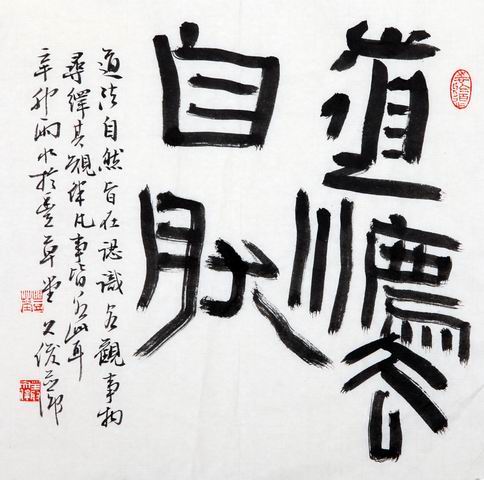 道灋
自肰
道法自然旨在認識客觀事物
尋繹其規律凡事皆此耳
辛卯雨水於草堂